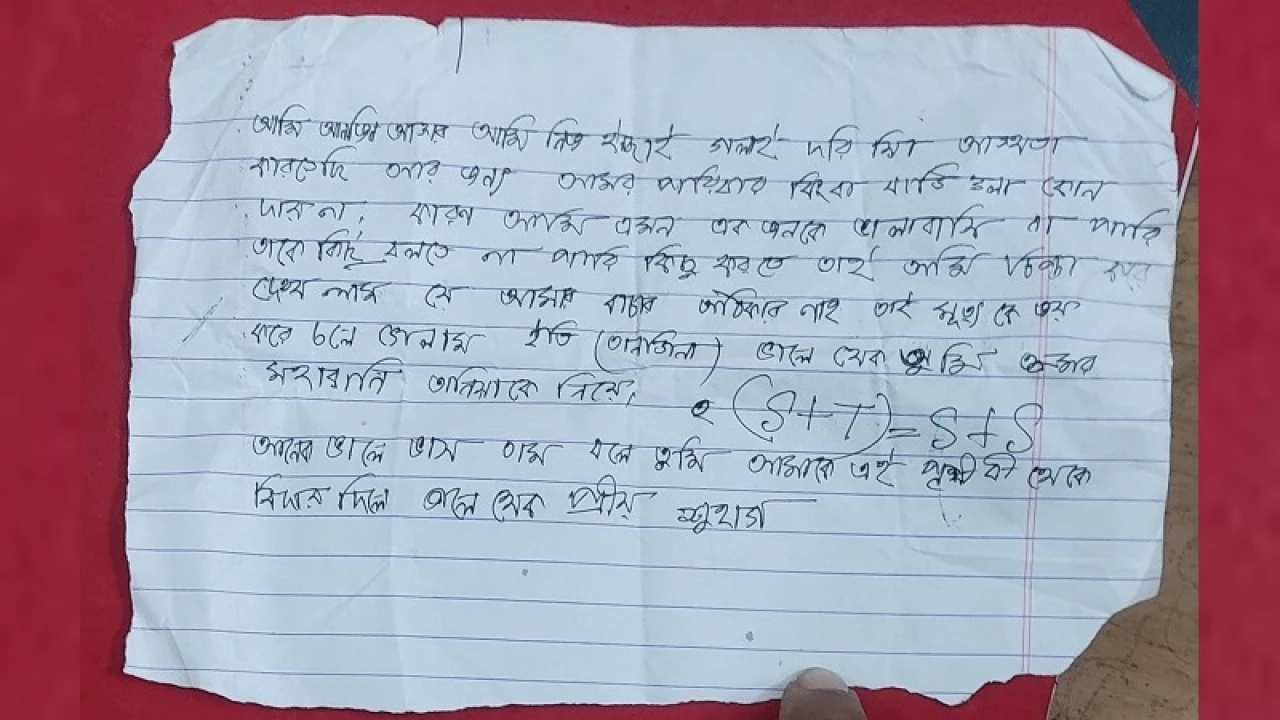 আমি আনজিল আমার আমি নিজ ইচ্ছাই গলাই দরি আত্মহত্যা
করতেছি আর জন্য আমর পরিবার কিংবা বাড়ি
দায় না, কারণ আমি এমন এক জনকে ভালোবাসি না পারি
তাকে কিছু বলতে না পারি কিছু করতে তাই আমি চিন্তা করে
দেখে লাম যে আমার বাচার অধিকার নাই তাই মৃত্যু কে জয়
করে চলে গেলাম ইতি (তানজিলা) ভালে থেক তুমি তুমার
মহারানি তানিয়াকে নিয়ে,
(S+T)= S+S
অনেক ভালে ভাস তাম বলে তুমি আমাকে এই পৃথিবী থেকে
বিদায় দিলে ভালে থেক প্রীয় শুহাগ